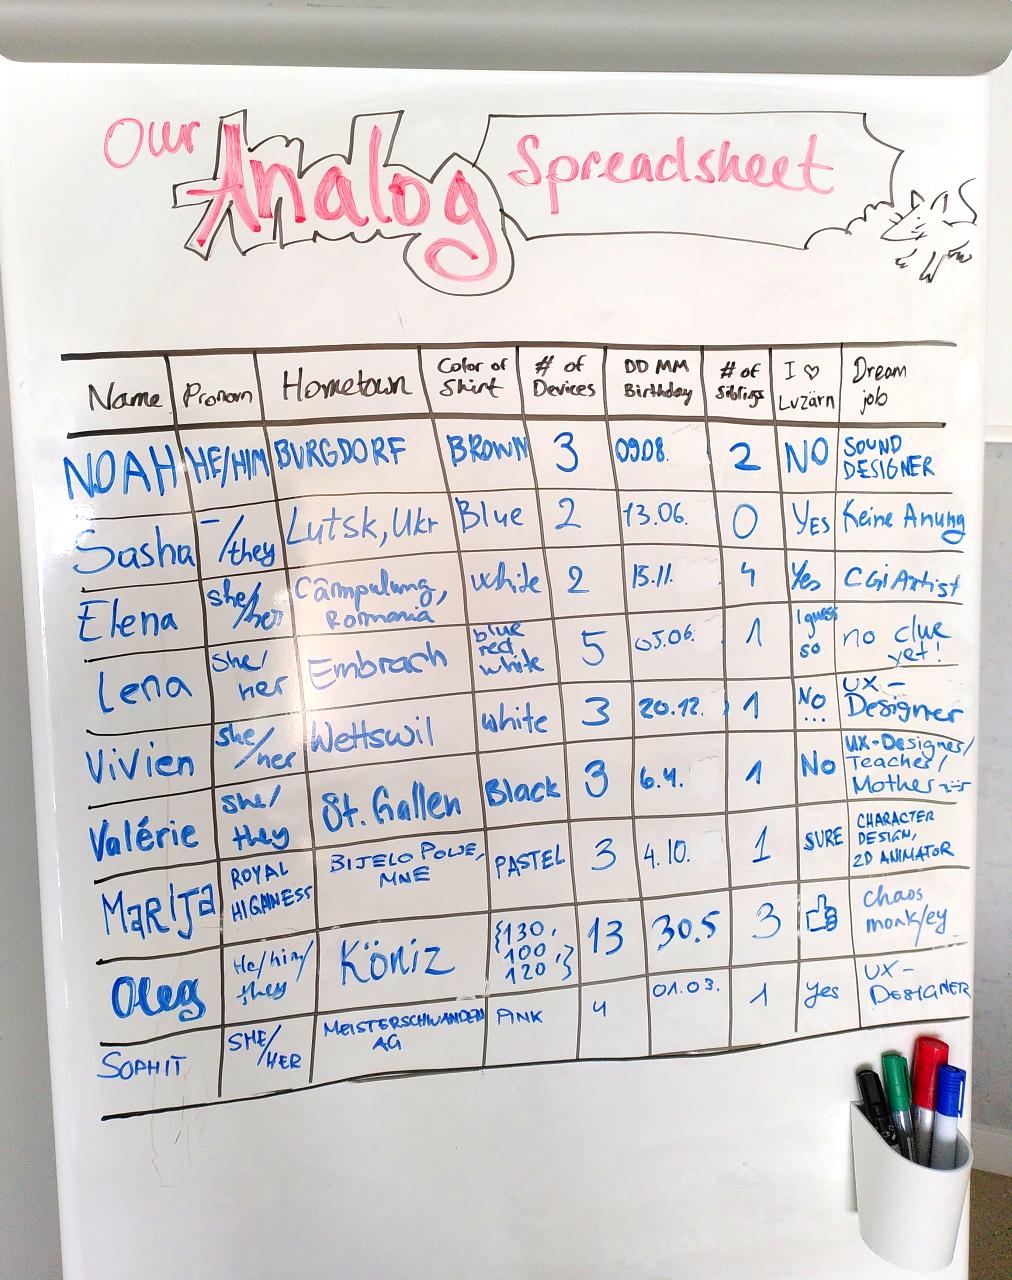 Our Analog Spreadsheet
Name Pronom Hometown Color of Shirt # of Devices DD MM Birthday # of Siblings I ♡ Luzärn Dream job
NOAH HE/HIM BURGDORF BROWN 3 09.08. 2 NO SOUND DESIGNER
Sasha –/they Lutsk, Ukr Blue 2 13.06. 0 YES Keine Anung
Elena she/her Câmpulung, Romania white 2 15.11. 4 Yes CGi Artist
Lena she/her Embrach blue red white 5 05.06. 1 I guess so no clue yet!
Vivien she/her Wettswil white 3 20.12. 1 No... UX-Designer
Valérie she/they St. Gallen Black 3 6.4. 1 No UX-Designer/Teacher/Mother
MarIJa ROYAL HIGANESS BIJELO POLJE, MNE PASTEL 3 4.10. 1 SURE CHARACTER DESIGN, 2D ANIMATOR
Oleg He/him/they Köniz {130, 100, 120,} 13 30.5 3 chaos monk/ey
SOPHIT SHE/HER MEISTERSCHWANDEN AG PINK 4 01.03. 1 yes UX-DESIGNER